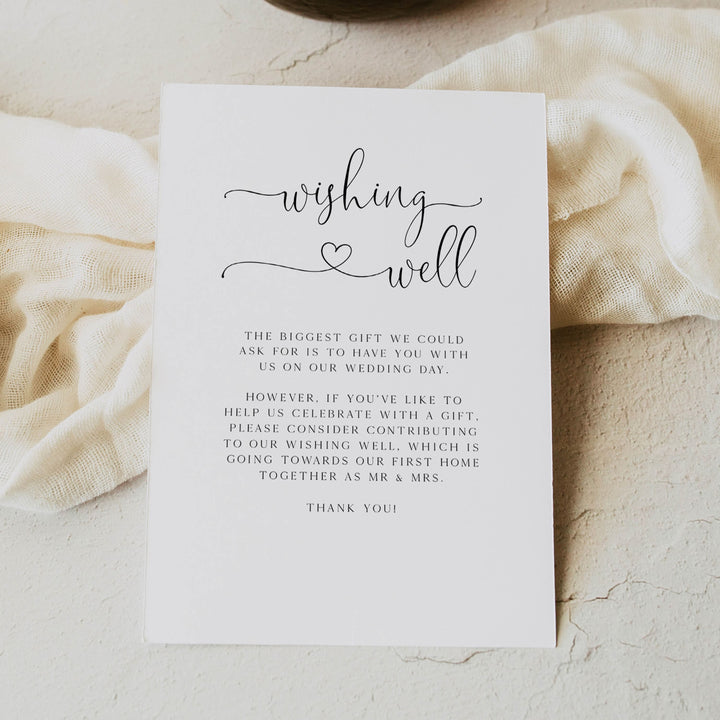 wishing
well
THE BIGGEST GIFT WE COULD
ASK FOR IS TO HAVE YOU WITH
US ON OUR WEDDING DAY.
HOWEVER, IF YOU'VE LIKE TO
HELP US CELEBRATE WITH A GIFT,
PLEASE CONSIDER CONTRIBUTING
TO OUR WISHING WELL, WHICH IS
GOING TOWARDS OUR FIRST HOME
TOGETHER AS MR & MRS.
THANK YOU!